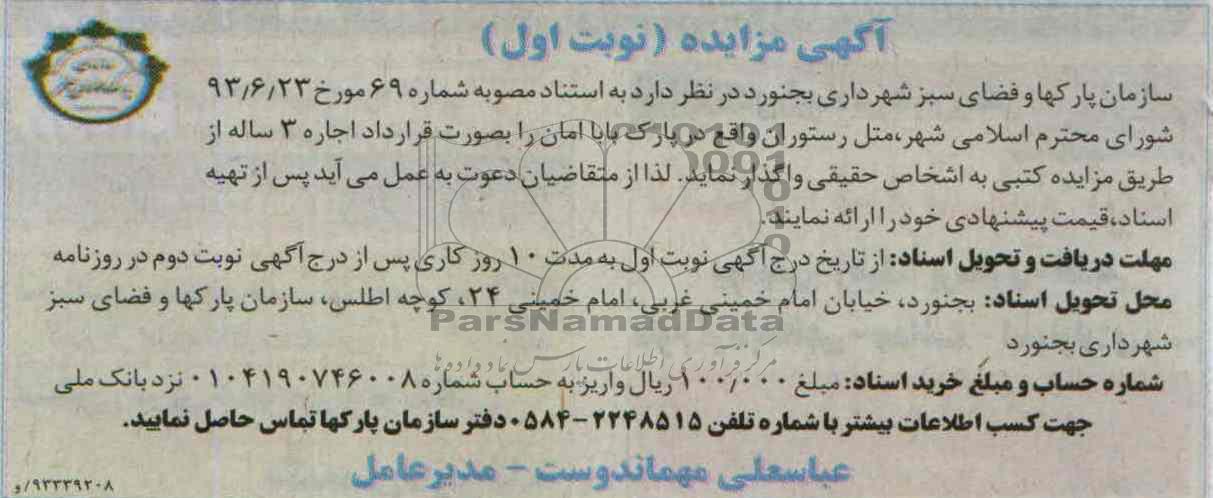 آگهی مزایده (نوبت اول)
سازمان پارکها و فضای سبز شهرداری بجنورد در نظر دارد به استناد مصوبه شماره ۶۹ مورخ ۹۳٫۶٫۲۳
شورای محترم اسلامی شهر،متل رستوران واقع در پارک بابا امان را بصورت قرارداد اجاره ۳ ساله از
طریق مزایده کتبی به اشخاص حقیقی واگذار نماید. لذا از متقاضیان دعوت به عمل می آید پس از تهیه
اسناد،قیمت پیشنهادی خود را ارائه نمایند.
مهلت دریافت و تحویل اسناد: از تاریخ درج آگهی نوبت اول به مدت ۱۰ روز کاری پس از درج آگهی نوبت دوم در روزنامه
محل تحویل اسناد: بجنورد، خیابان امام خمینی غربی، امام خمینی ۲۴، کوچه اطلس، سازمان پارکها و فضای سبز
شهرداری بجنورد
ParsNamadData
مرکز فرآوری اطلاعات پارس نماد داده ها
شماره حساب و مبلغ خرید اسناد: مبلغ ۱۰۰٫۰۰۰ ریال واریز به حساب شماره ۰۱۰۴۱۹۰۷۴۶۰۰۸ نزد بانک ملی
جهت کسب اطلاعات بیشتر با شماره تلفن ۲۲۴۸۵۱۵-۰۵۸۴ دفتر سازمان پارکها تماس حاصل نمایید.
عباسعلی مهماندوست - مدیرعامل
۹۳۳۳۹۲۰۸/و